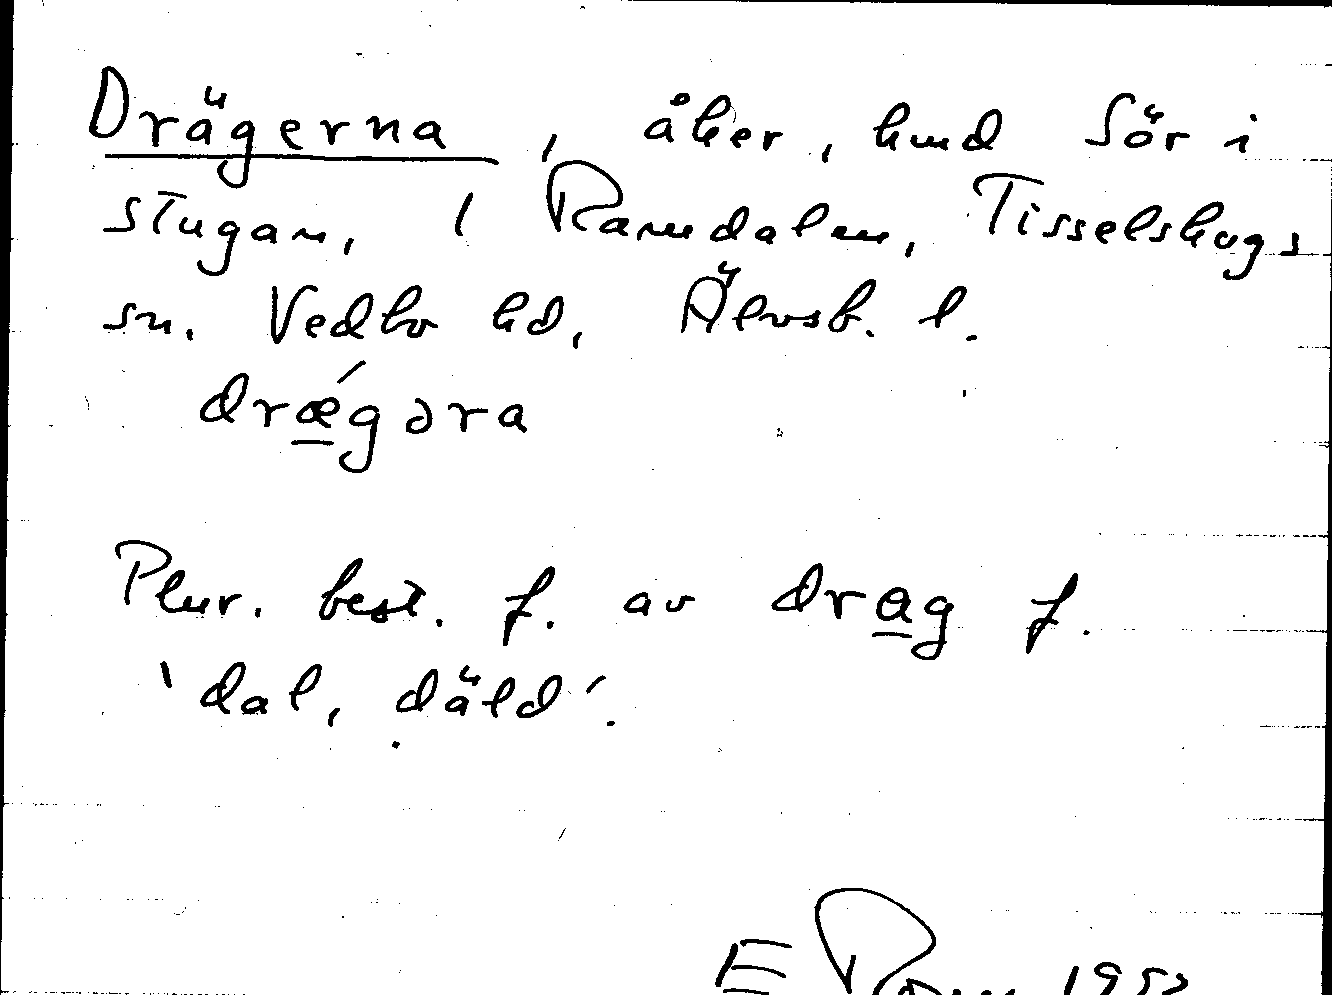 Drägerna, åker, hmd Sör i
stugan, 1 Ramdalen, Tisselskogs
sn. Vedbo hd, Älvsb. l.
drǽgəra
Plur. best. f. av drag f.
'dal, däld'.
E